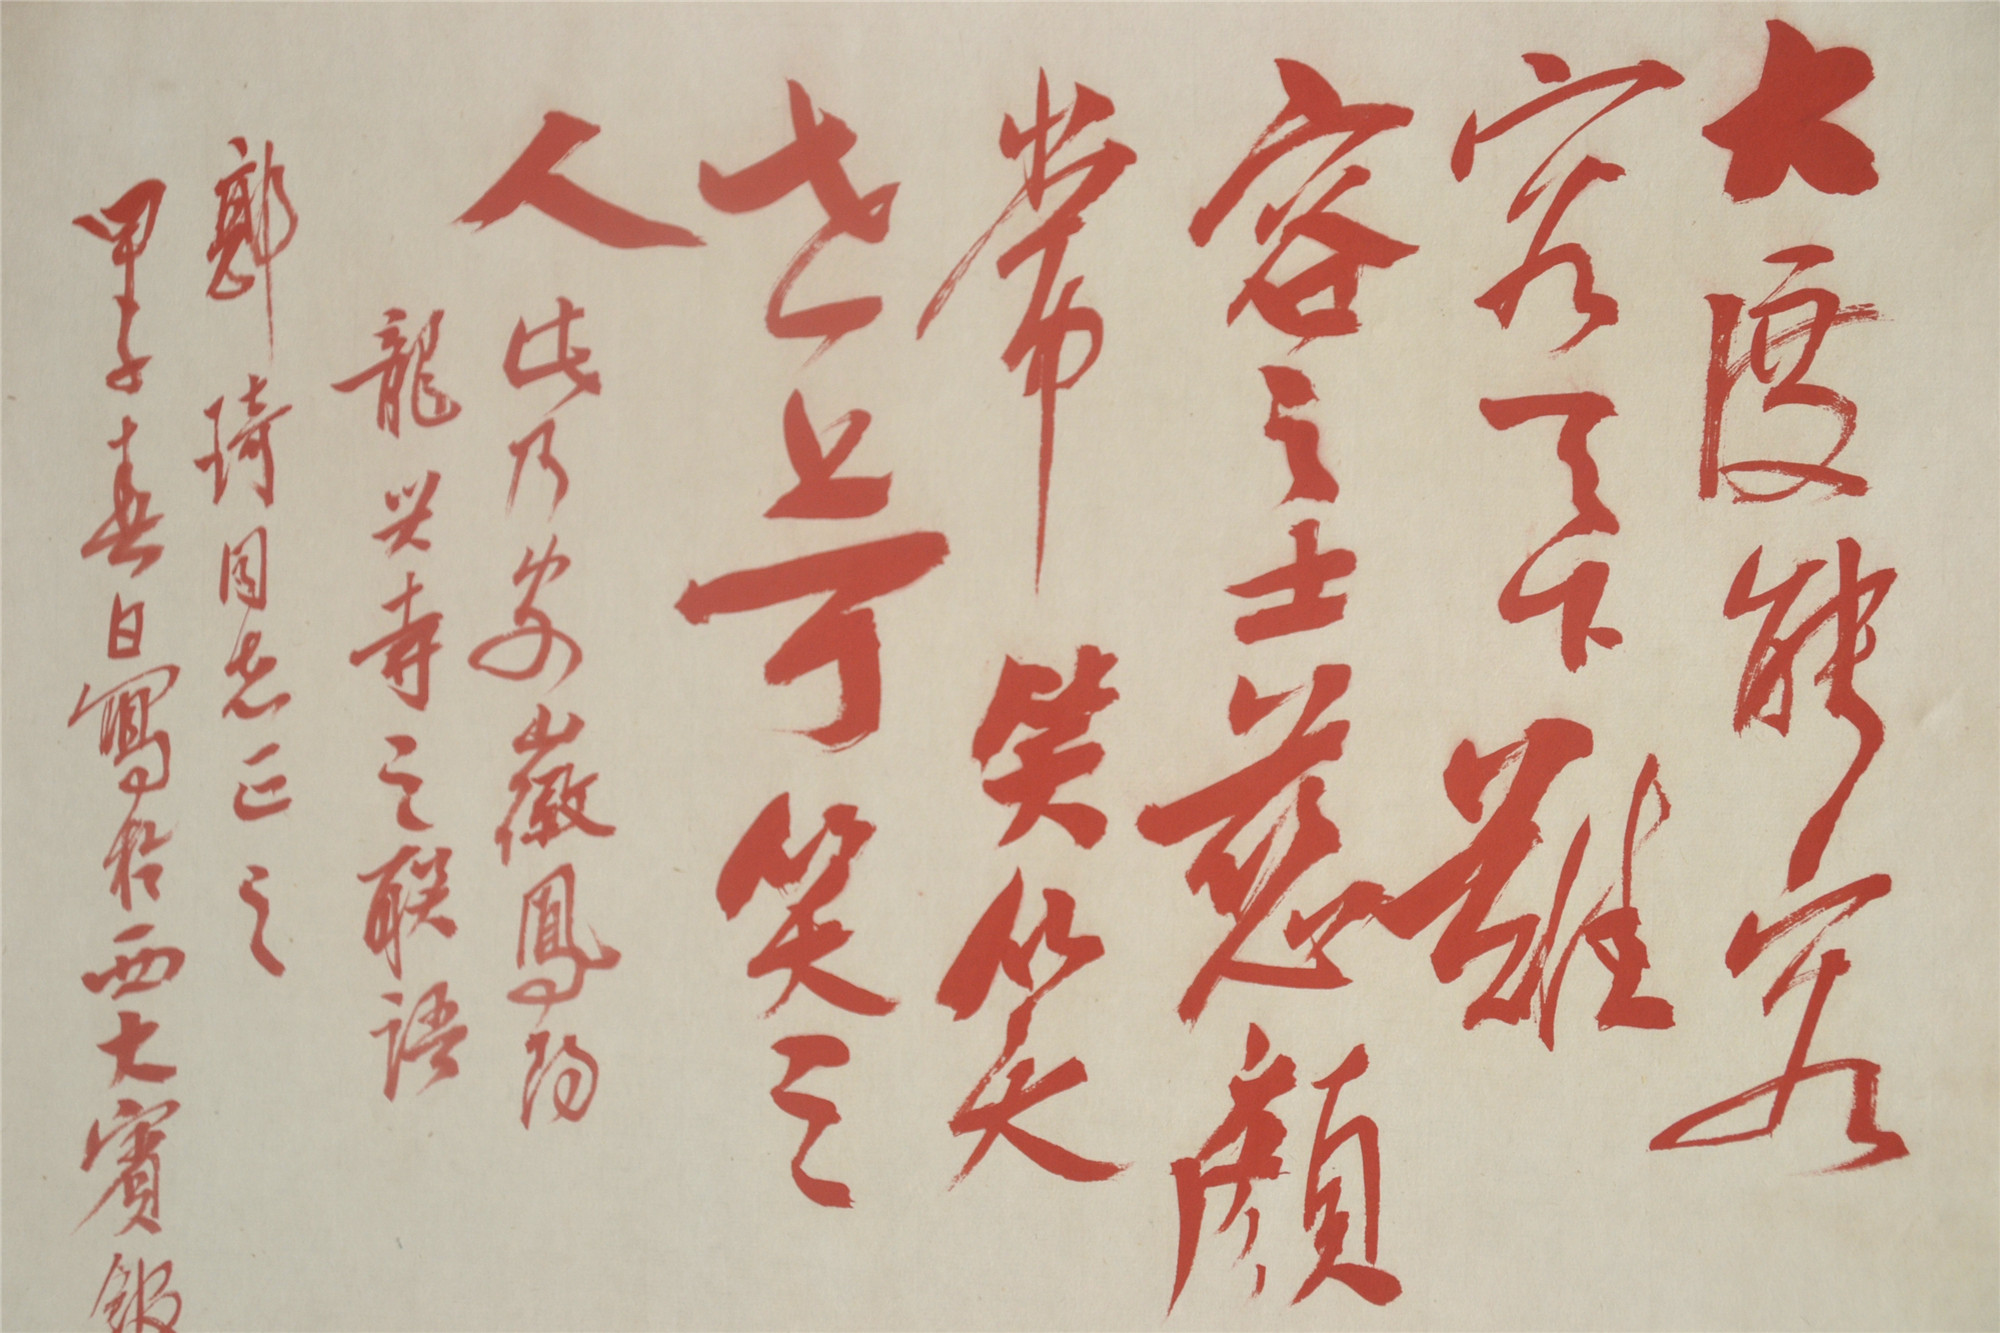 大度能容
容天下難
容之士慈顏
常笑笑
世上可笑之
人此乃安徽鳳陽
龍兴寺之联語
郭琦同志正之
甲子春日寫於西大賓館